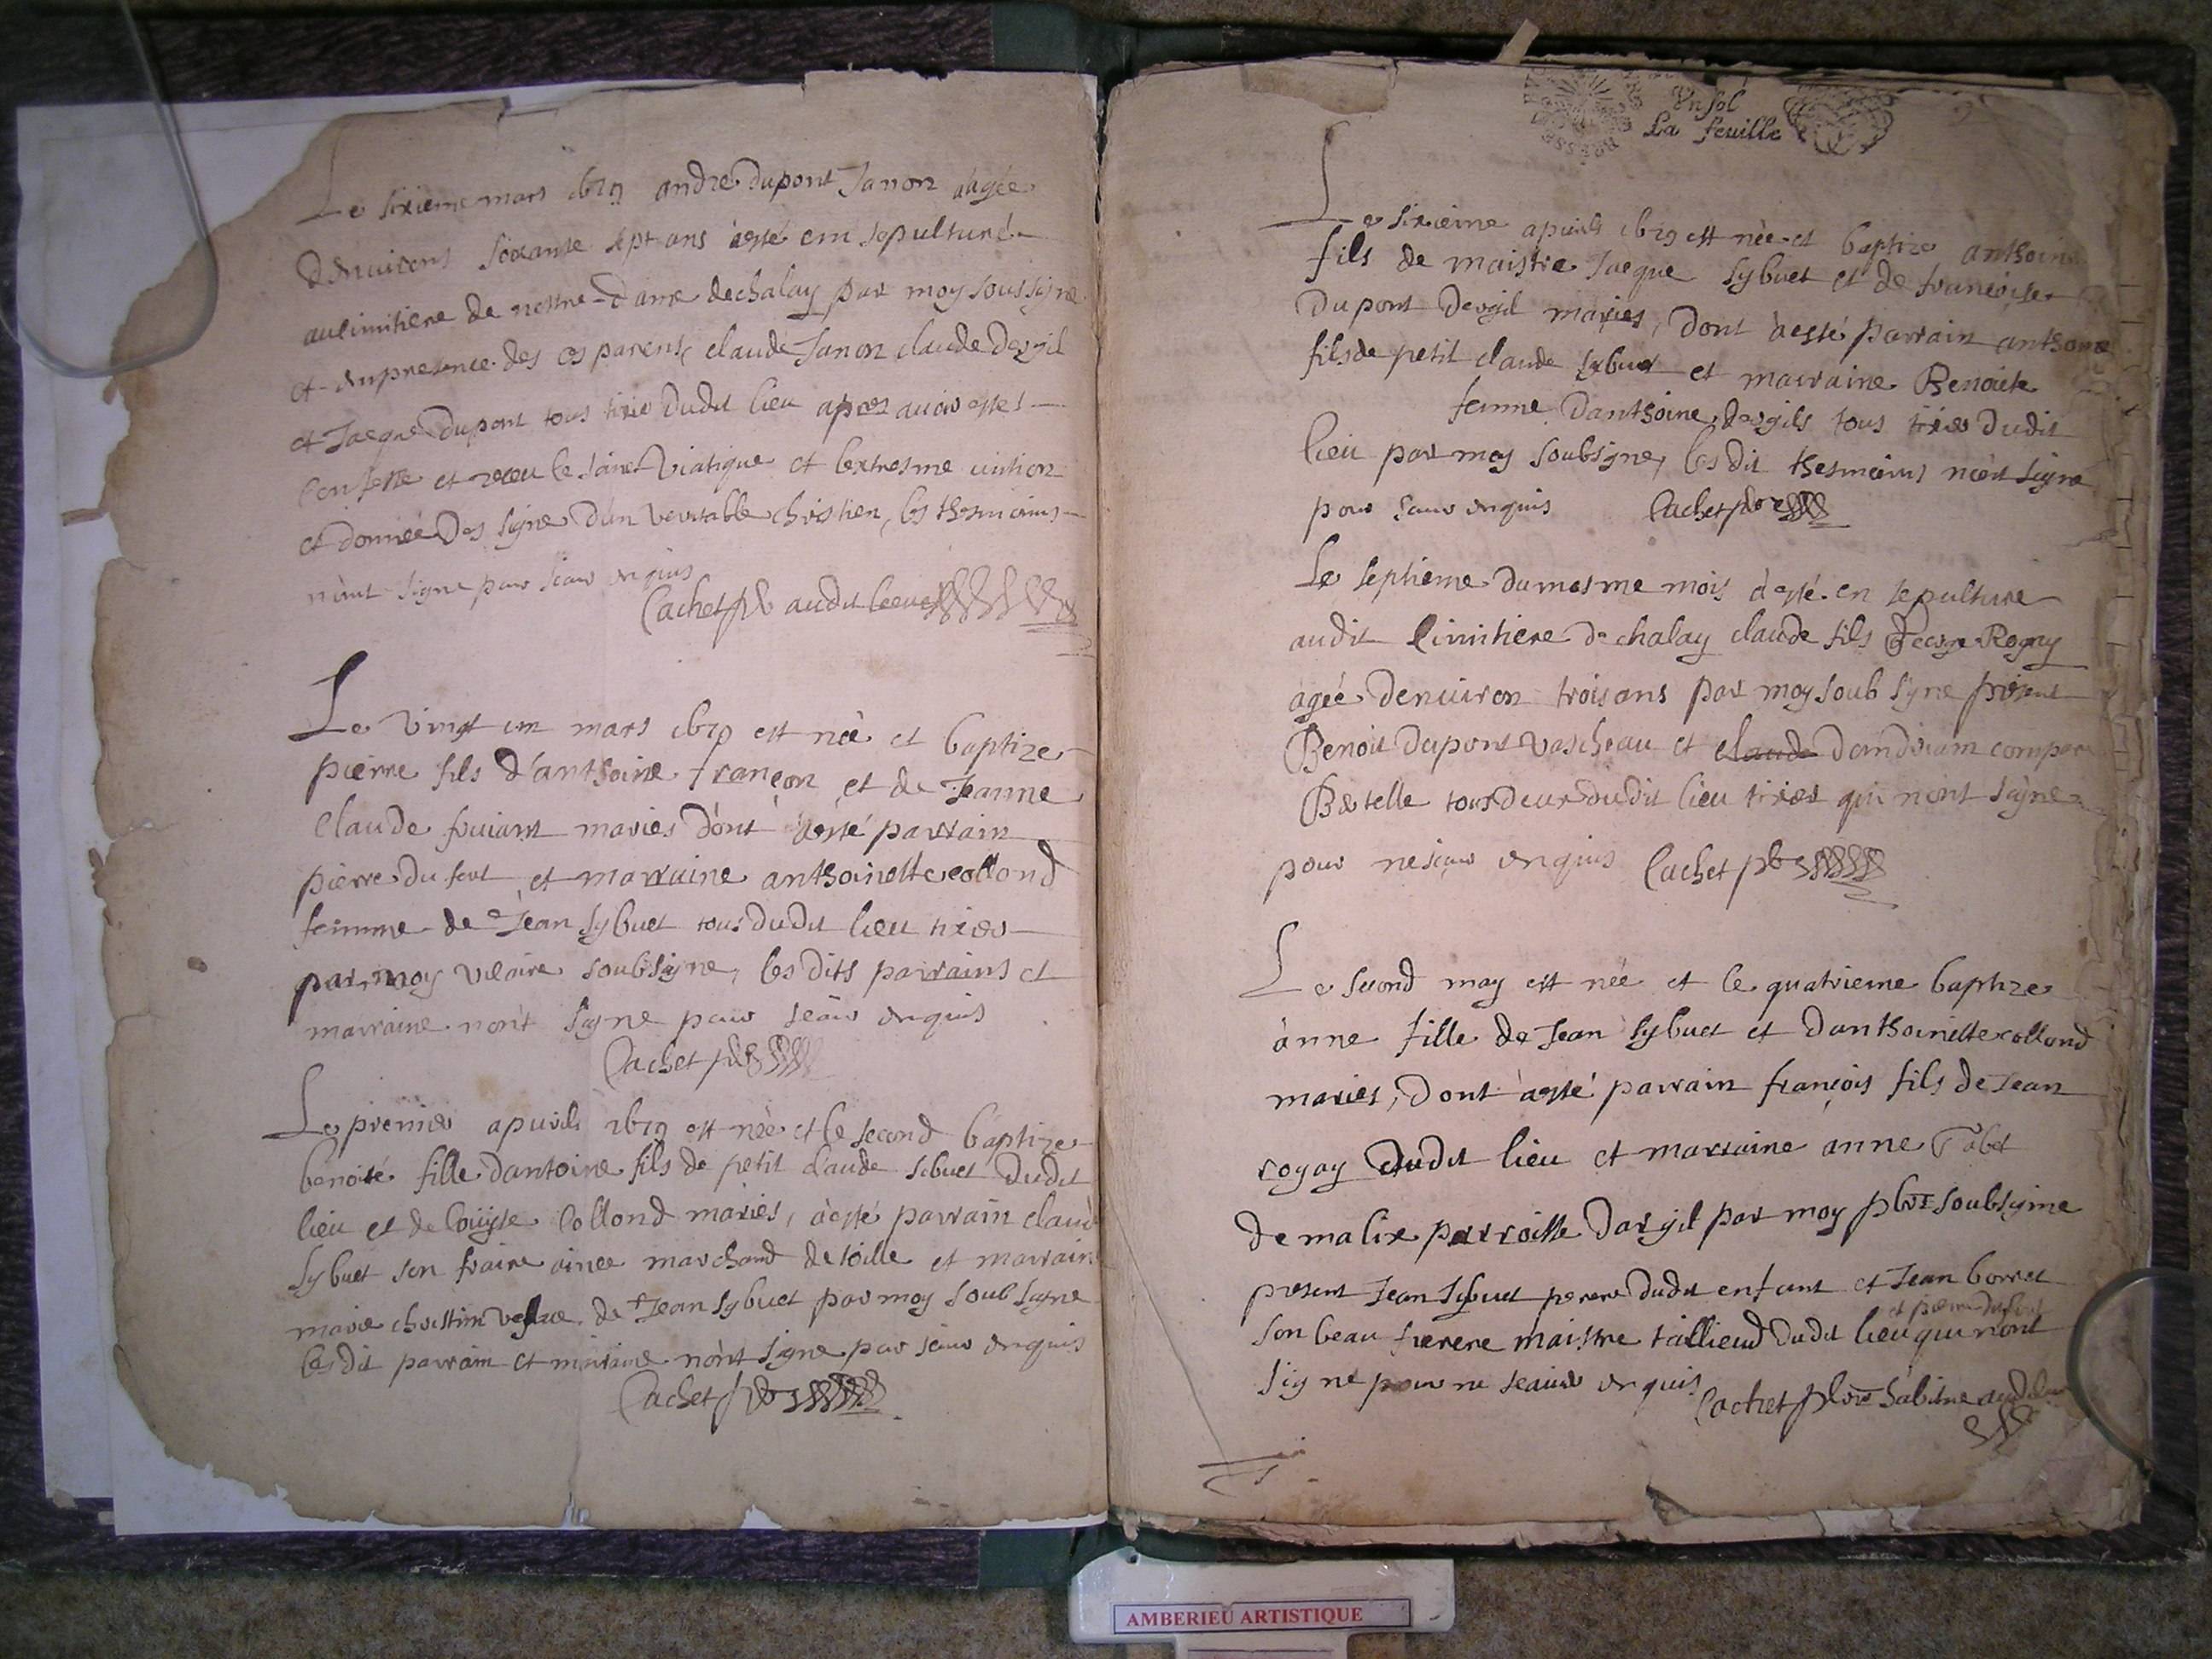 Le sixieme mars 1679 andre dupont Janon aagée
denvirons soixante sept ans àesté em sepulturé
au cimitiere de nostre-dame de chalay par moy soussigne
et en presence des es parens, claude Janon claude dergil
et Jaeque dupont tous dudit lieu apres avoir estes
confesse et receu le sainct viatique et lextresme unction
et donnée des signe dun veritable chrestien, les thesmoins
nònt signe pour scavoir enquis
Cachet pbr audit lieu
Le vingt um mars 1679 est née et baptize
pierre fils d'anthoine françon et de Jeanne
Claude maries dònt àesté parrain
pierre du fort et marraine anthoinette collond
femme de Jean sybuet tous dudit lieu
par moy vicaire soubsigne, les dits parrains et
marraine nònt signe pour enquis
Cachet pbr
Le premier apvril 1679 est née et le second baptize
benoite fille dantoine fils de petit claude sibuet dudit
lieu et de Collond maries, àesté parrain claud
sybuet son fraire ainee marchand de toille et marrain
marie christin vefue de Jean sybuet par moy soubsigne
les dit parrain et maraine nònt signe pour enquis
Cachet pbr
Un sol
La feuille
Le sixieme apvril 1679 est née et baptize anthoine
fils de maistre Jaeque sybuet et de francoise
dupont dergil maries, dont àesté parrain anthoine
fils de petit claude sybuet et marraine Benoite
femme danthoine dergils tous dudit
lieu par moy soubsigne, les dit thesmoins nont signe
pour enquis Cachet pbr
Le septieme du mesme mois àesté en sepulture
audit Cimitiere de chalay claude fils Rogny
àgeé denviron trois ans par moy soub signe present
Benoit dupont vascheau et claude
tous deux dudit lieu qui nont signe
pour ne scavoir enquis Cachet pbr
Le second may est née et le quatrieme baptize
ànne fille de Jean sybuet et danthoinette collond
maries, dont àesté parrain françois fils de Jean
rogay dudit lieu et marraine anne Tabet
de malix parroisse dargil par moy pbre soubsigne
present Jean sybuet perere dudit enfant et Jean borret
et pierre dufort
son beau frerere maistre tallieud dudit lieu qui nont
signe pour ne scavoir enquis
Cachet pbre
AMBERIEU ARTISTIQUE